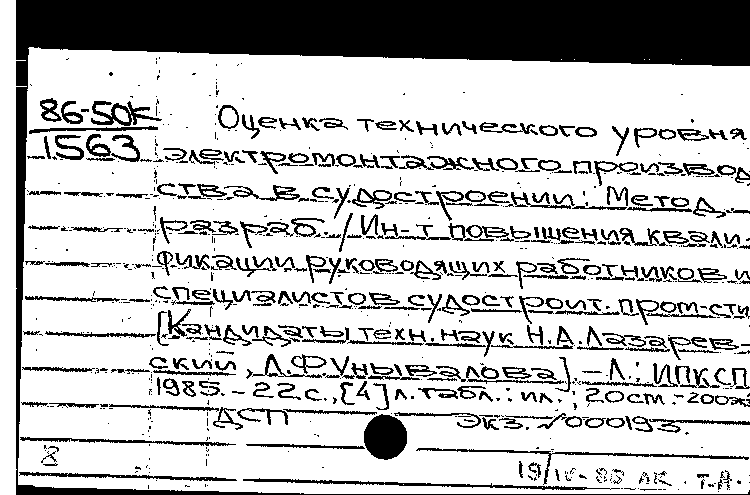 86-50К
1563
Оценка технического уровня
электромонтажного производ
ства в судостроении: Метод.
разраб. / Ин-т повышения квали-
фикации руководящих работников и
специалистов судостроит. пром-сти
[Кандидаты техн. наук Н.А. Лазарев-
ский, Л.Ф Унывалова]. – Л.: ИПКСП
1985. – 22 с., [4] л. табл.: ил.; 20 см. - 200эк
ДСП Экз. №000193.
8
19/IV-88 ЛК. Т.А.